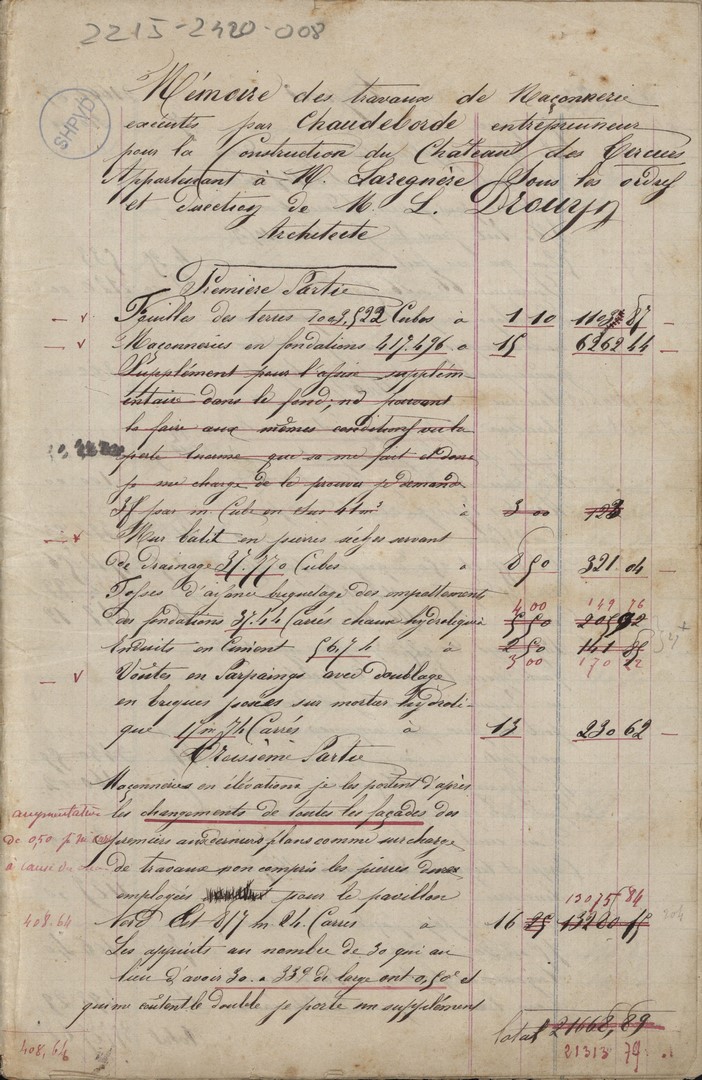 2215-2420-008
SHPVD
Mémoire des travaux de Maçonnerie
exécutés par Chaudeborde entreprenneur
pour la Construction du Chateau des Cerceés
Appartenant à M. Laregnère Sous les ordres
et direction de M L. Drouyn
Architecte
Première Partie
Fouilles des terres 1003,522 Cubes à 1 10 1103 87
Maçonneries en fondations 417.496 à 15 6262 44
Supplément pour l'assise supplém-
entaire dans le fond, ne pouvant
la faire aux mêmes conditions vu la
perte énorme que sa me fait et dont
je me charge de le prouver je demande
3f par m Cube en sus 41 m3 à 3 00 123
Mur bâtit en pierres sèches servant
de Drainage 37.770 Cubes à 8 50 321.04
Fosses d'aisance briquetage des empattements
4 00 149 76
des fondations 37.44 Carrés chaux hydrolique à 5 50 205 92
Enduits en Ciment 56,74 à 2 50 141 85
3 00 170 22
Voutes en Parpaings avec doublage
en briques posées sur mortier hydroli-
que 17m 74 Carrés à 13 230 62
Troisième Partie
Maçonneries en élévations je les portent d'après
les changements de toutes les façades des
premiers aux derniers plans comme surcharge
de travaux non compris les pierres dures
employées pour le pavillon
augmentation
de 0,50 p m carré
à cause du
13075 84
408.64 Nord Est 817 m 24 Carrés à 16 25 13280 15
Les appuits au nombre de 30 qui au
lieu d'avoir 30 à 33c de large ont 0,50c et
qui me coûtent le double je porte un supplément
Total 21668,89
21313 79
408,66